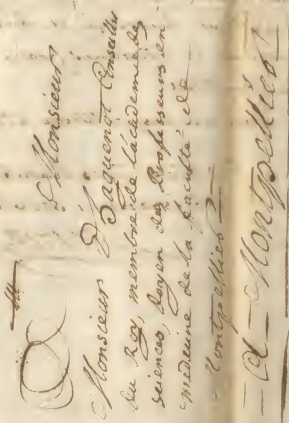 A
Monsieur
Monsieur Haguenot Conseiller
du Roy, membre de lacademie des
sciences, doyen des Professeurs en
medecine de la faculté de
Montpellier
A Montpellier